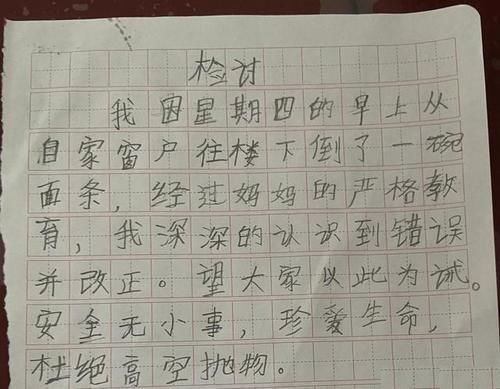 检讨
我因星期四的早上从
自家窗户往楼下倒了一碗
面条，经过妈妈的严格教
育，我深深的认识到错误
并改正。望大家以此为诫。
安全无小事，珍爱生命，
杜绝高空抛物。